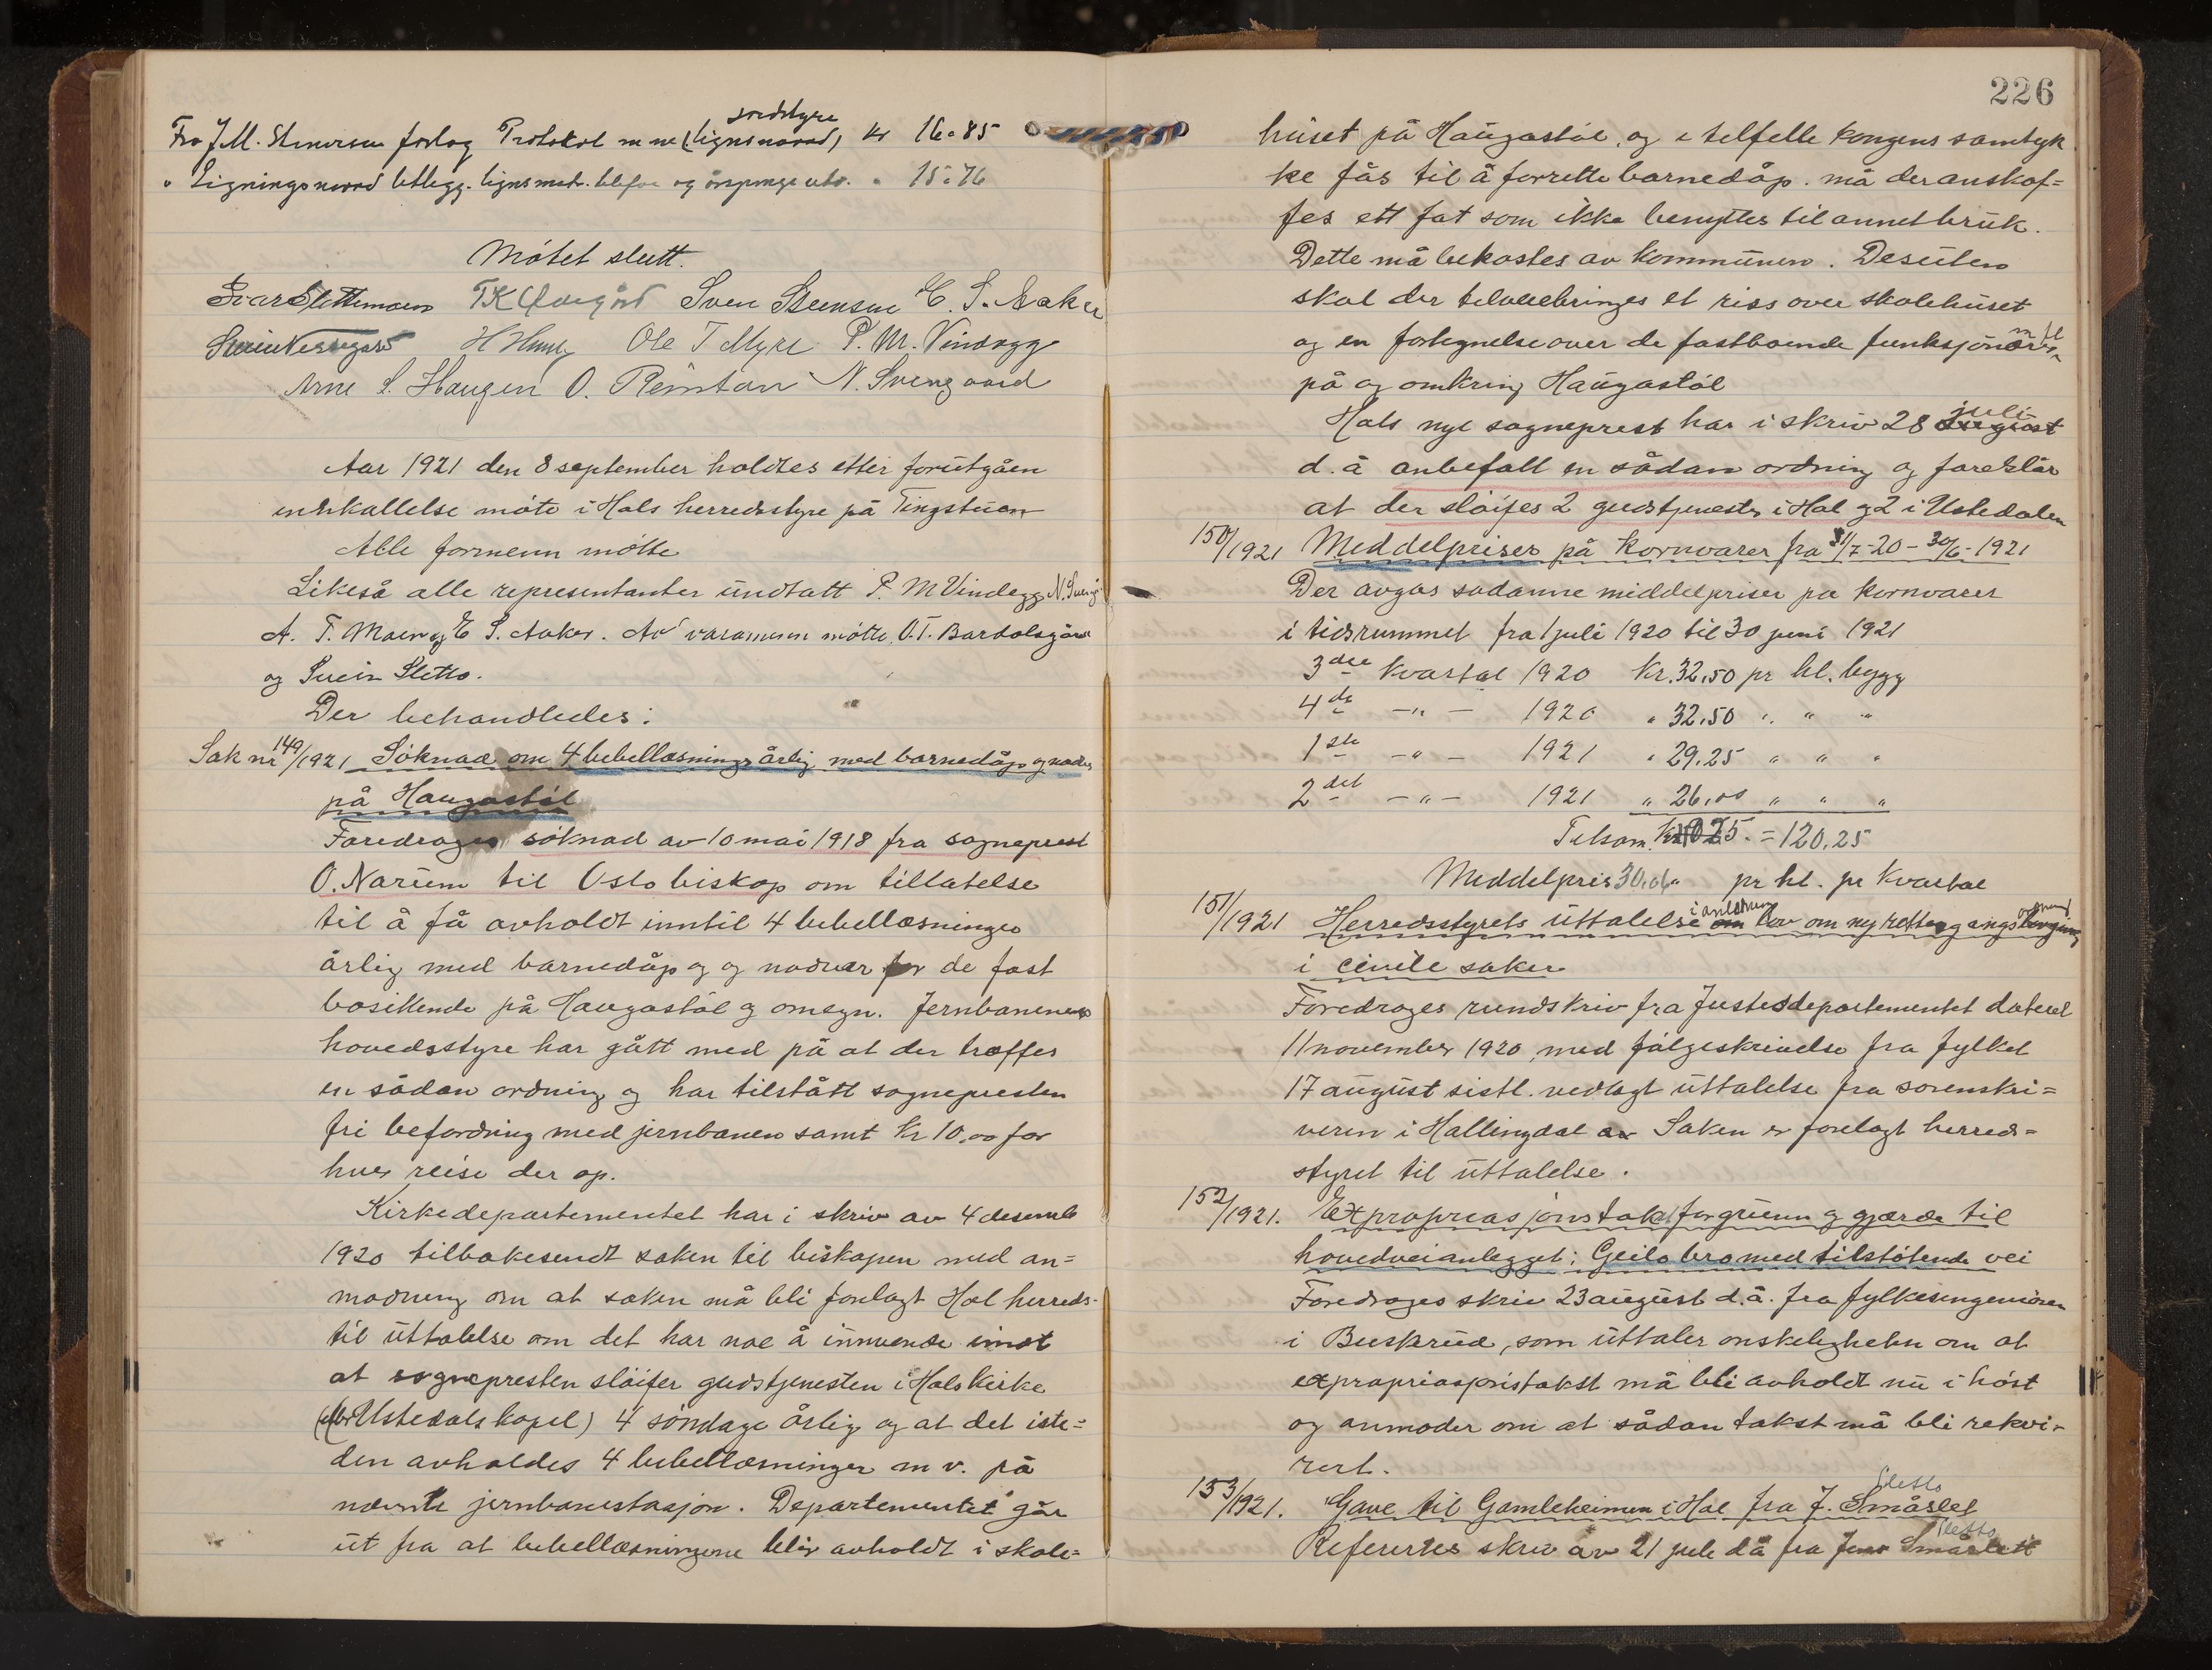 sordstyre
Fra J.M. Stenersen forlag Protokol m m (lignsnevnd) kr 16.85
" Ligningsnevnd utlegg. lignsmat. telefon og ut. " 15.76
Møtet slutt.
Ivar Slettemoen TK Sven Steensen E. S. Aaker
Svein Nesregard H Ole T Myre P. M. Vindegg
Arne S. Haugen O. Reinton N. Svengaard
Aar 1921 den 8 september holdtes etter forutgåen
innkallelse møte i Hols herredsstyre på Tingstuen
Alle formenn møtte
Likeså alle representanter undtatt P. M Vindegg, N. Sveng.
A. T. Moen og E S. Aaker. Av varamenn møtte O.T. Bardolsgård
og Svein Sletto.
Der behandledes:
Sak nr 149/1921 Søknad om 4 bibellæsninger årlig med barnedåp og nadver
på Haugastøl
Foredroges søknad av 10 mai 1918 fra sogneprest
O. Narum til Oslo biskop om tillatelse
til å få avholdt inntil 4 bibellæsninger
årlig med barnedåp og og nadver for de fast
bosittende på Haugastøl og omegn. Jernbanenes
hovedsstyre har gått med på at der træffes
en sådan ordning og har tilstått sognepresten
fri befordring med jernbanen samt kr 10,00 for
hver reise der op.
Kirkedepartementet har i skriv av 4 desemb
1920 tilbakesendt saken til biskopen med an=
modning om at saken må bli forelagt Hol herreds-
til uttalelse om det har noe å innvende imot
at sognepresten sløifer gudstjenesten i Hols kirke
(eller Ustedals kapel) 4 søndage årlig og at det iste=
den avholdes 4 bibellæsninger m v. på
nævnte jernbanestasjon. Departementet går
ut fra at bibellæsningene blir avholdt i skole=
226
huset på Haugastøl, og i tilfelle kongens samtyk
ke fås til å forrette barnedåp. må der anskaf=
fes ett fat som ikke benyttes til annet bruk.
Dette må bekostes av kommunen. Desuten
skal der tilveiebringes et riss over skolehuset
og en fortegnelse over de fastboende funksjonærer m fl
på og omkring Haugastøl
juli
Hols nye sogneprest har i skriv 28 august
d. å anbefalt en sådan ordning og foreslår
at der sløifes 2 gudstjenester i Hol og 2 i Ustedalen
150/1921 Middelpriser på kornvarer fra 31/7-20 - 30/6-1921
Der avgas sadanne middelpriser på kornvarer
i tidsrummet fra 1 juli 1920 til 30 juni 1921
3die kvartal 1920 kr. 32,50 pr hl. bygg
4de -"- 1920 " 32,50 " " "
1ste -"- 1921 " 29,25 " " "
2det -"- 1921 " 26,00 " " "
Tilsam. = 120,25
Middelpris 30,06 pr hl. pr kvartal
i anledning ordning
151/1921 Herredsstyrets uttalelse om lov om ny rettergangs
i civile saker
Foredroges rundskriv fra Justisdepartementet datert
11 november 1920, med følgeskrivelse fra fylket
17 august sistl. vedlagt uttalelse fra sorenskri=
veren i Hallingdal av Saken er forelagt herreds=
styret til uttalelse.
152/1921. Expropriasjonstakst for grunn og gjærde til
hovedveianlegget: Geilo bro med tilstøtende vei
Foredroges skriv 23 august d.å. fra fylkesingeniøren
i Buskrud, som uttaler ønskeligheten om at
expropriasjonstakst må bli avholdt nu i høst
og anmoder om at sådan takst må bli rekvi-
rert.
Sletto
153/1921. Gave til Gamleheimen i Hol fra J. Småslet
Sletto
Refererter skriv av 21 juli då fra Jens Småslett